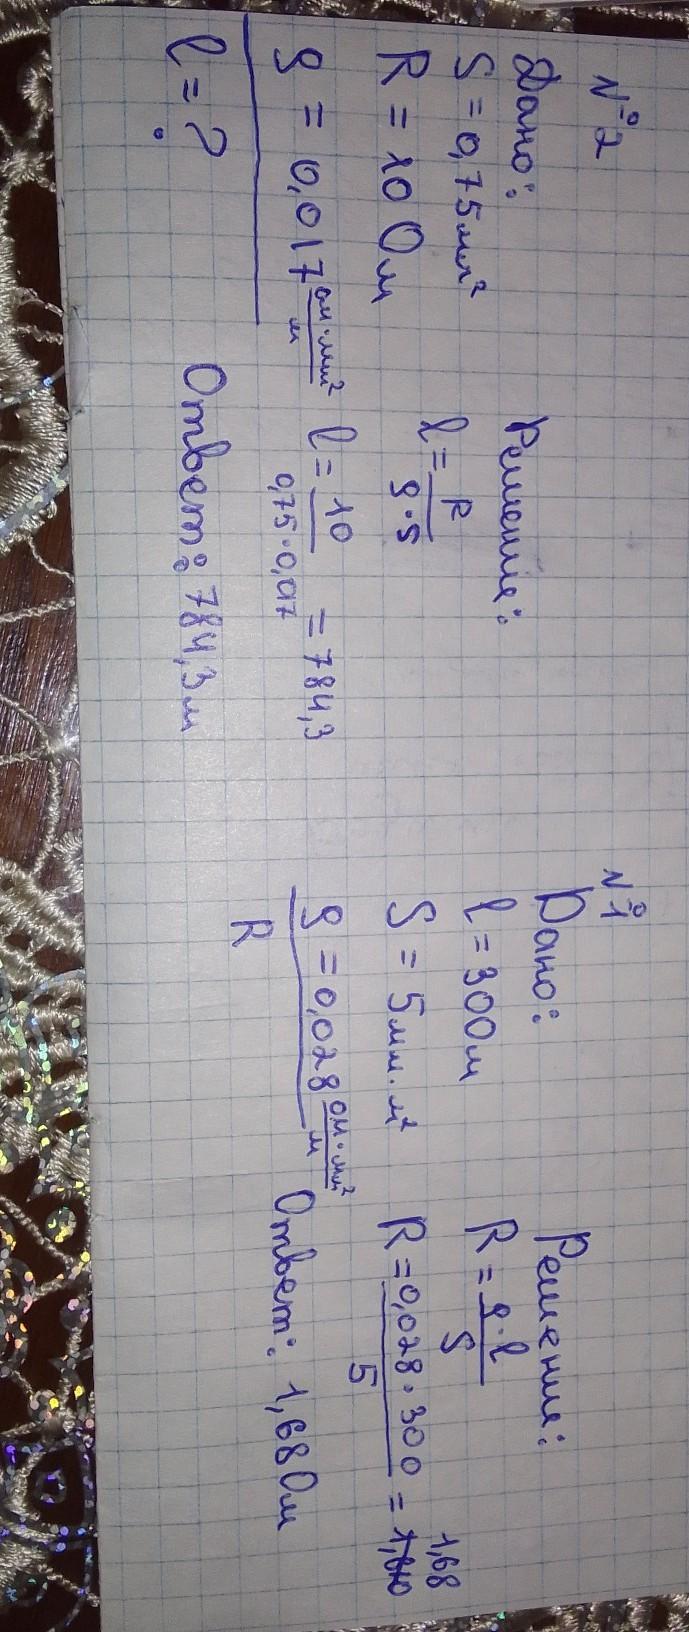 №2
Дано:
S = 0,75 мм²
R = 10 Ом
ρ = 0,017 ом·мм²/м
l = ?
Решение:
l = R/ρ·S
l = 10/0,75·0,017 = 784,3
Ответ: 784,3 м
№1
Дано:
l = 300м
S = 5 мм.м²
ρ = 0,028 ом·мм²/м
R
Решение:
R = ρ·l/S
R = 0,028·300/5 = 1,68
Ответ: 1,68 Ом